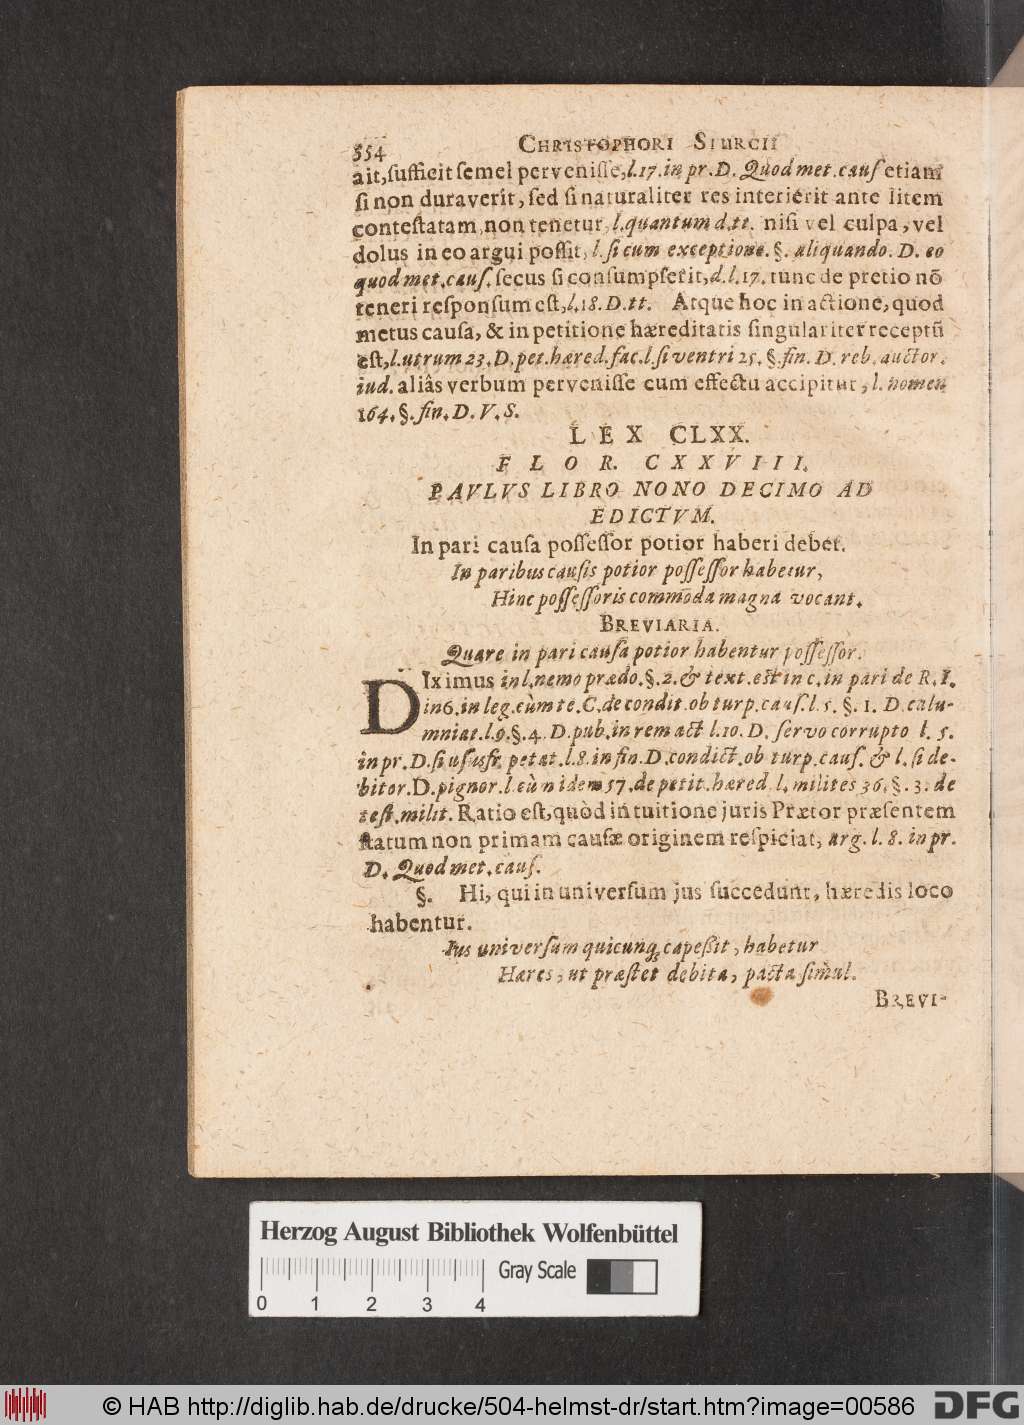 554 CHRISTOPHORI STURCII
ait, sufficit semel pervenisse, l. 17. in pr. D. Quod met. caus etiam
si non duraverit, sed si naturaliter res interierit ante litem
contestatam, non tenetur, l. quantum d. tt. nisi vel culpa, vel
dolus in eo argui possit, l. si cum exceptione. §. aliquando. D. eo
quod met. caus. secus si consumpserit, d. l. 17. tunc de pretio nõ
teneri responsum est, l. 18. D. tt. Atque hoc in actione, quod
metus causa, & in petitione hæreditatis singulariter receptũ
est, l. utrum 23. D. pet. hæred. fac. l. si ventri 25. §. fin. D. reb. auctor.
iud. aliâs verbum pervenisse cum effectu accipitur, l. nomen
164. §. fin. D. V. S.
LEX CLXX.
FLOR. CXXVIII.
PAVLVS LIBRO NONO DECIMO AD
EDICTVM.
In pari causa possessor potior haberi debet.
In paribus causis potior possessor habetur,
Hinc possessoris commoda magna vocant.
BREVIARIA.
Quare in pari causa potior habentur possessor.
DIximus in l. nemo prædo. §. 2. & text. est in c. in pari de R. I.
in 6. in leg. cùm te. C. de condit. ob turp. caus. l. 5. §. 1. D. calu-
mniat. l. 9. §. 4. D. pub. in rem act l. 10. D. servo corrupto l. 5.
in pr. D. si ususfr. petat. l. 8. in fin. D. condict. ob turp. caus. & l. si de-
bitor. D. pignor. l. eùm idem 57. de petit. hæred. l. milites 36. §. 3. de
test. milit. Ratio est, quòd intuitione juris Prætor præsentem
statum non primam causæ originem respiciat, arg. l. 8. in pr.
D. Quod met. caus.
§. Hi, qui in universum jus succedunt, hæredis loco
habentur.
Ius universum quicunq; capeßit, habetur
Hæres, ut præstet debita, pacta simul.
BREVI-
Herzog August Bibliothek Wolfenbüttel
Gray Scale
0 1 2 3 4
© HAB http://diglib.hab.de/drucke/504-helmst-dr/start.htm?image=00586
DFG